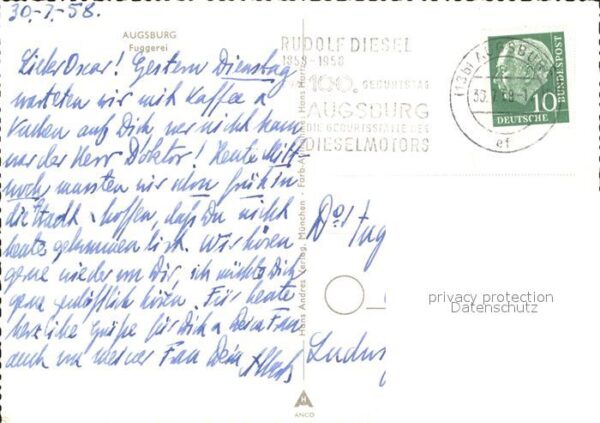 30.7.58.
AUGSBURG
Fuggerei
Lieber Oscar! Gestern Dienstag
warteten wir mit Kaffee &
Kuchen auf Dich, wer nicht kam
war der Herr Doktor! Heute Mitt-
woch mussten wir schon früh in
die Stadt & hoffen, daß Du nicht
heute gekommen bist. Wir hören
gerne wieder von Dir, ich möchte Dich
gerne hören. Für heute
herzliche Grüße für Dich & Deine Frau
auch von meiner Frau Dein
RUDOLF DIESEL
1858-1958
100. GEBURTSTAG
AUGSBURG
DIE GEBURTSSTÄTTE DES
DIESELMOTORS
(13b) AUGSBURG
30.7.58
ef
10
DEUTSCHE
BUNDESPOST
Hans Andres Verlag, München - Farb-Aufnahme: Hans Hartz
Ludw
privacy protection
Datenschutz
ANCO